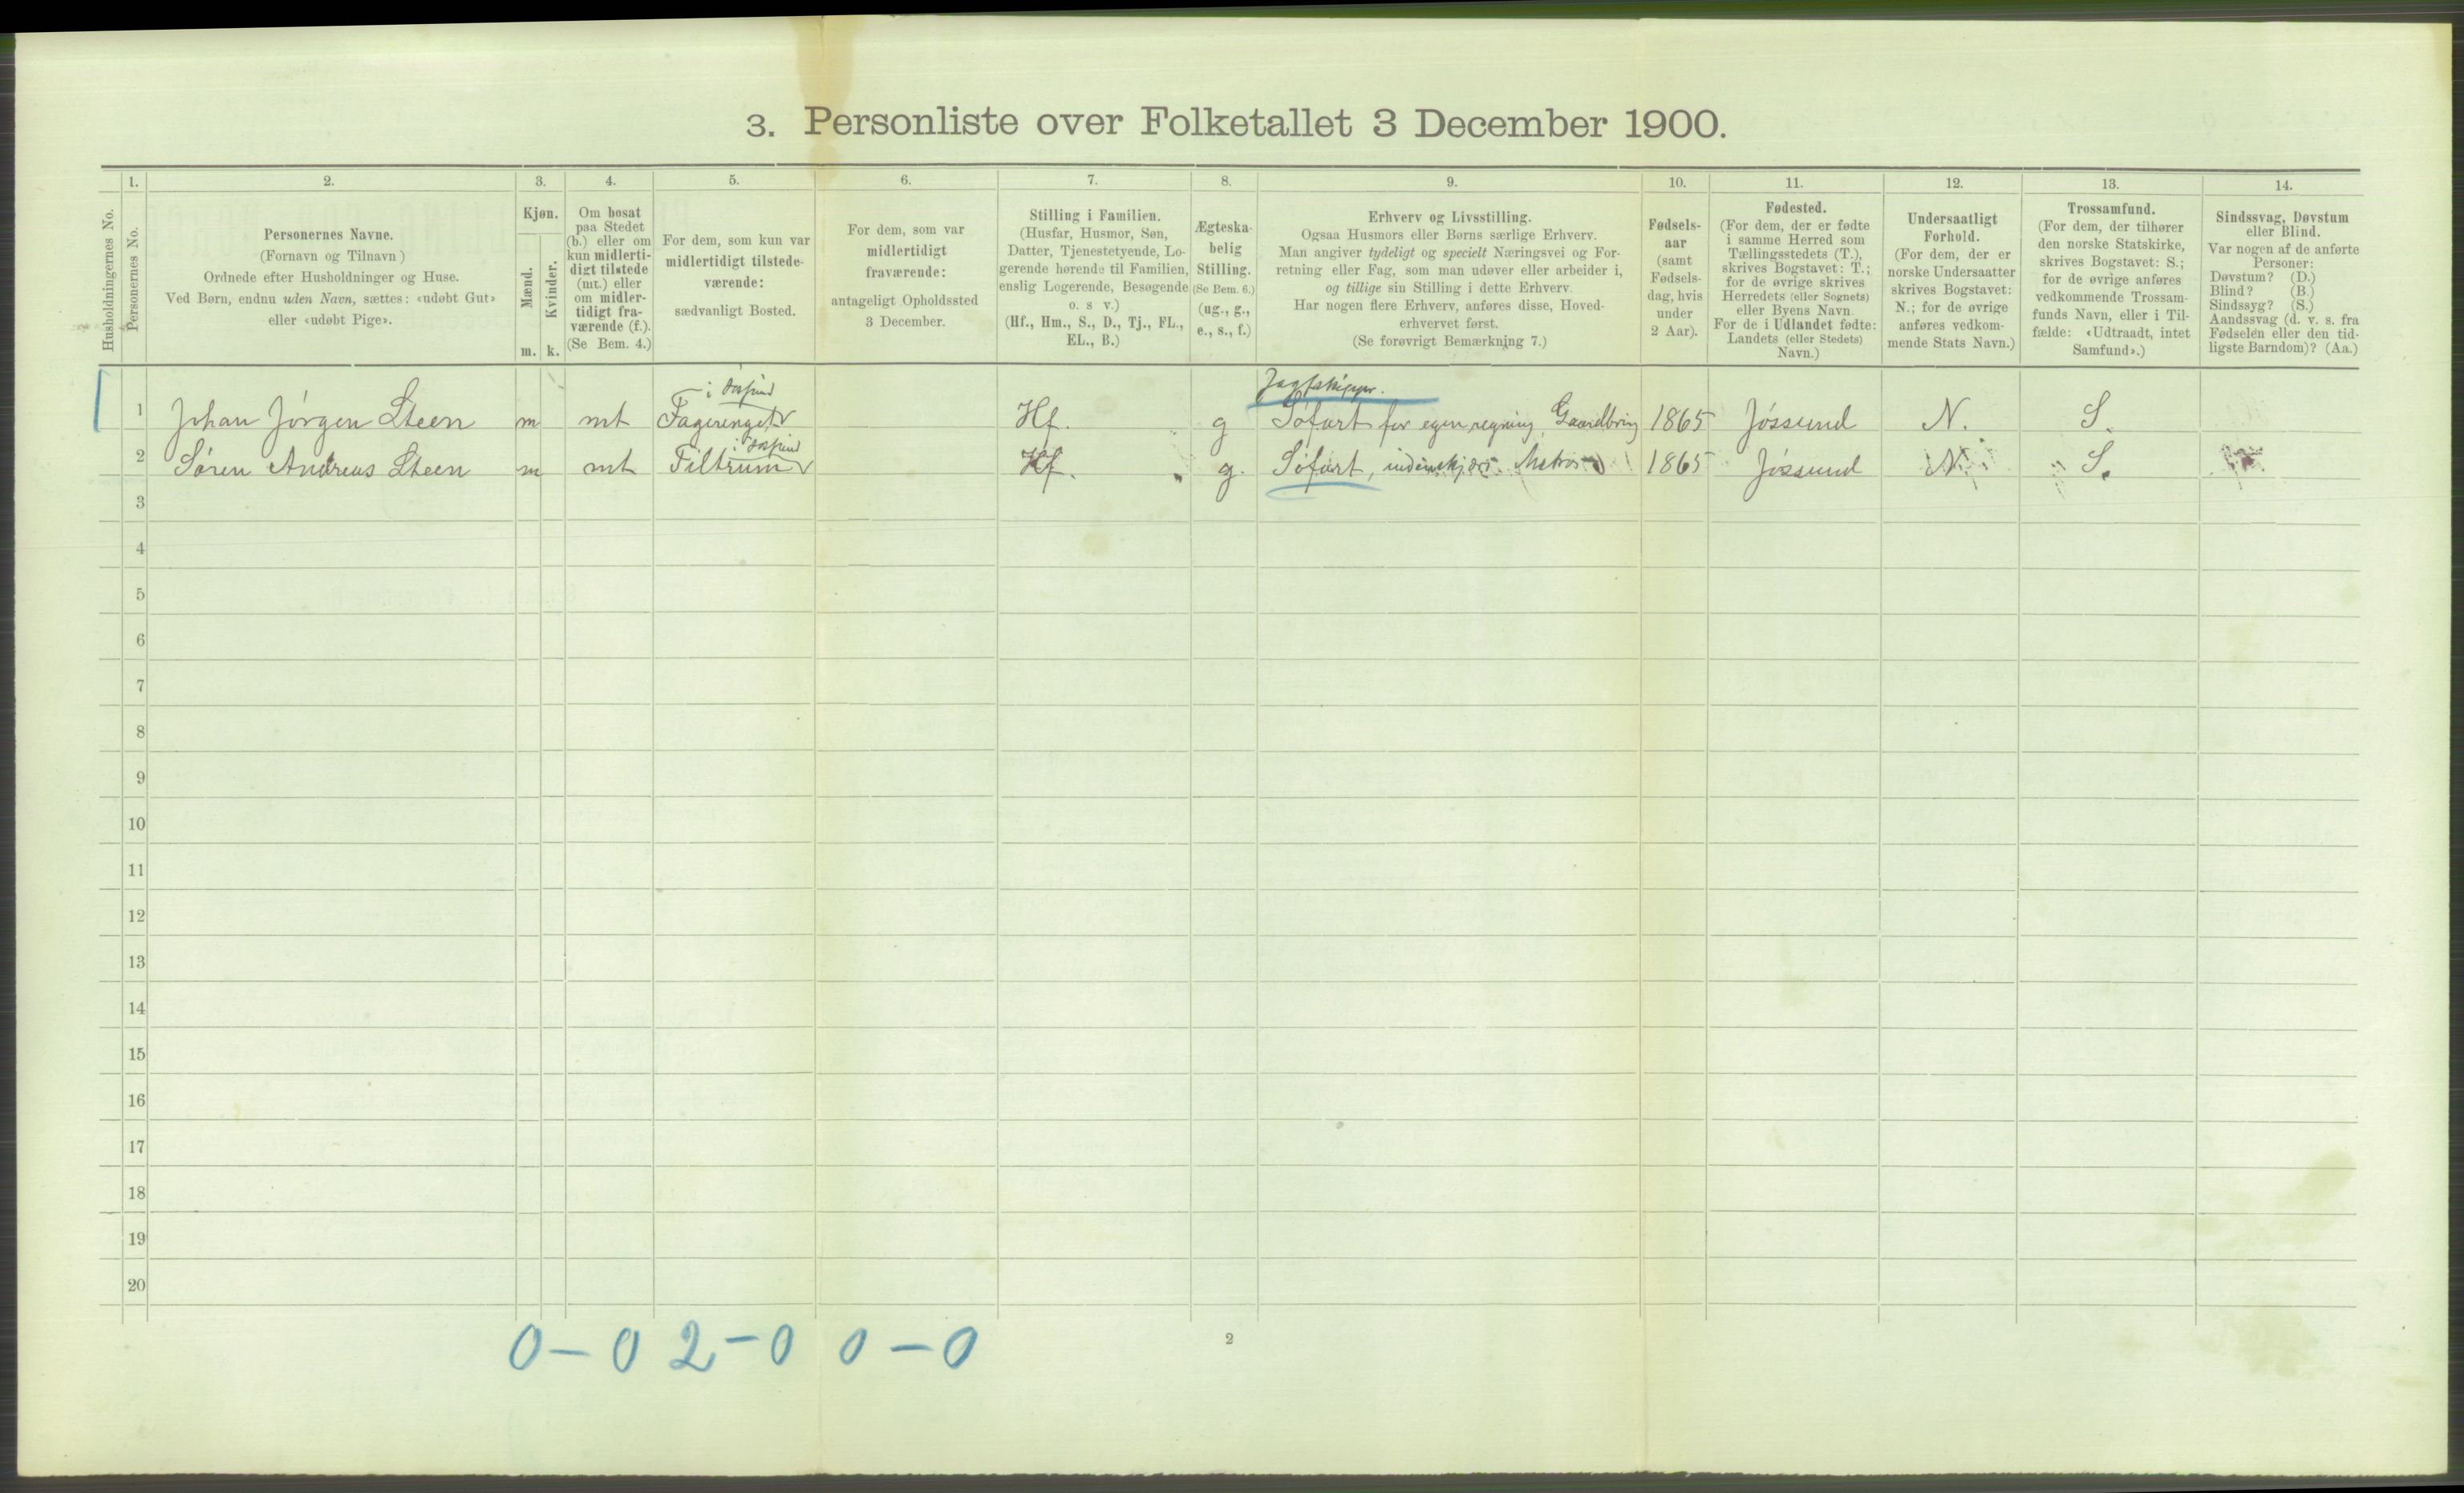 3. Personliste over Folketallet 3 December 1900.
1. 2. 3. 4. 5. 6. 7. 8. 9. 10. 11. 12. 13. 14.
Husholdningernes No.
Personernes No.
Personernes Navne.
(Fornavn og Tilnavn)
Ordnede efter Husholdninger og Huse.
Ved Børn, endnu uden Navn, sættes: «udøbt Gut»
eller «udøbt Pige».
Kjøn.
Mænd.
Kvinder.
m. k.
Om bosat
paa Stedet
(b.) eller om
kun midlerti-
digt tilstede
(mt.) eller
om midler-
tidigt fra-
værende (f.).
(Se Bem. 4.)
For dem, som kun var
midlertidigt tilstede-
værende:
sædvanligt Bosted.
For dem, som var
midlertidigt
fraværende:
antageligt Opholdssted
3 December.
Stilling i Familien.
(Husfar, Husmor, Søn,
Datter, Tjenestetyende, Lo-
gerende hørende til Familien,
enslig Logerende, Besøgende
o. s v.)
(Hf., Hm., S., D., Tj., FL.,
EL., B.)
Ægteska-
belig
Stilling.
(Se Bem. 6.)
(ug., g.,
e., s., f.)
Erhverv og Livsstilling.
Ogsaa Husmors eller Børns særlige Erhverv.
Man angiver tydeligt og specielt Næringsvei og For-
retning eller Fag, som man udøver eller arbeider i,
og tillige sin Stilling i dette Erhverv.
Har nogen flere Erhverv, anføres disse, Hoved-
erhvervet først.
(Se forøvrigt Bemærkning 7.)
Fødsels-
aar
(samt
Fødsels-
dag, hvis
under
2 Aar).
Fødested.
(For dem, der er fødte
i samme Herred som
Tællingsstedets (T.),
skrives Bogstavet: T.;
for de øvrige skrives
Herredets (eller Sognets)
eller Byens Navn.
For de i Udlandet fødte:
Landets (eller Stedets)
Navn.)
Undersaatligt
Forhold.
(For dem, der er
norske Undersaatter
skrives Bogstavet:
N.; for de øvrige
anføres vedkom-
mende Stats Navn.)
Trossamfund.
(For dem, der tilhører
den norske Statskirke,
skrives Bogstavet: S.;
for de øvrige anføres
vedkommende Trossam-
funds Navn, eller i Til-
fælde: «Udtraadt, intet
Samfund».)
Sindssvag, Døvstum
eller Blind.
Var nogen af de anførte
Personer:
Døvstum? (D.)
Blind? (B.)
Sindssyg? (S.)
Aandssvag (d. v. s. fra
Fødselen eller den tid-
ligste Barndom)? (Aa.)
Jagtskipper.
1 Johan Jörgen Steen m mt Fagerenget Hf. g Söfart for egen regning 1865 Jössund N. S.
2 Sören Andreas Steen m mt Hf. g. Söfart, indenskjærs Matros 1865 Jössund N. S.
3
4
5
6
7
8
9
10
11
12
13
14
15
16
17
18
19
20
0 – 0 2 – 0 0 – 0
2